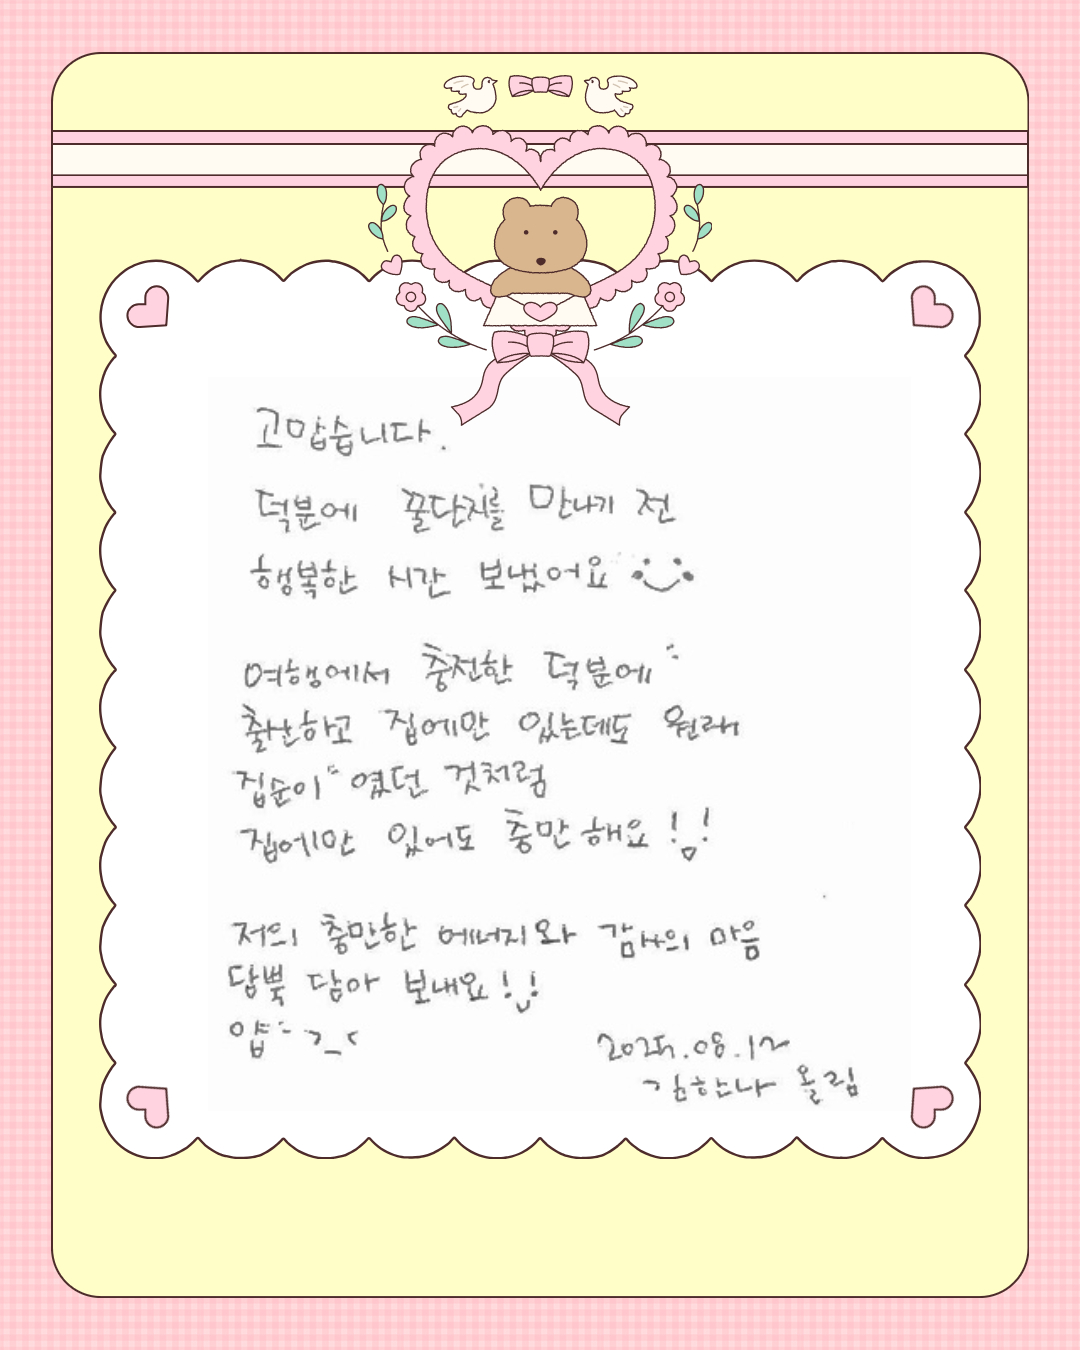 고맙습니다.
덕분에 꿀단지를 만나기 전
행복한 시간 보냈어요
여행에서 충전한 덕분에
출산하고 집에만 있는데도 원래
집순이 였던 것처럼
집에만 있어도 충만해요!!
저의 충만한 에너지와 감사의 마음
담뿍 담아 보내요!!
얍 >_<
2025.08.12
김한나 올림